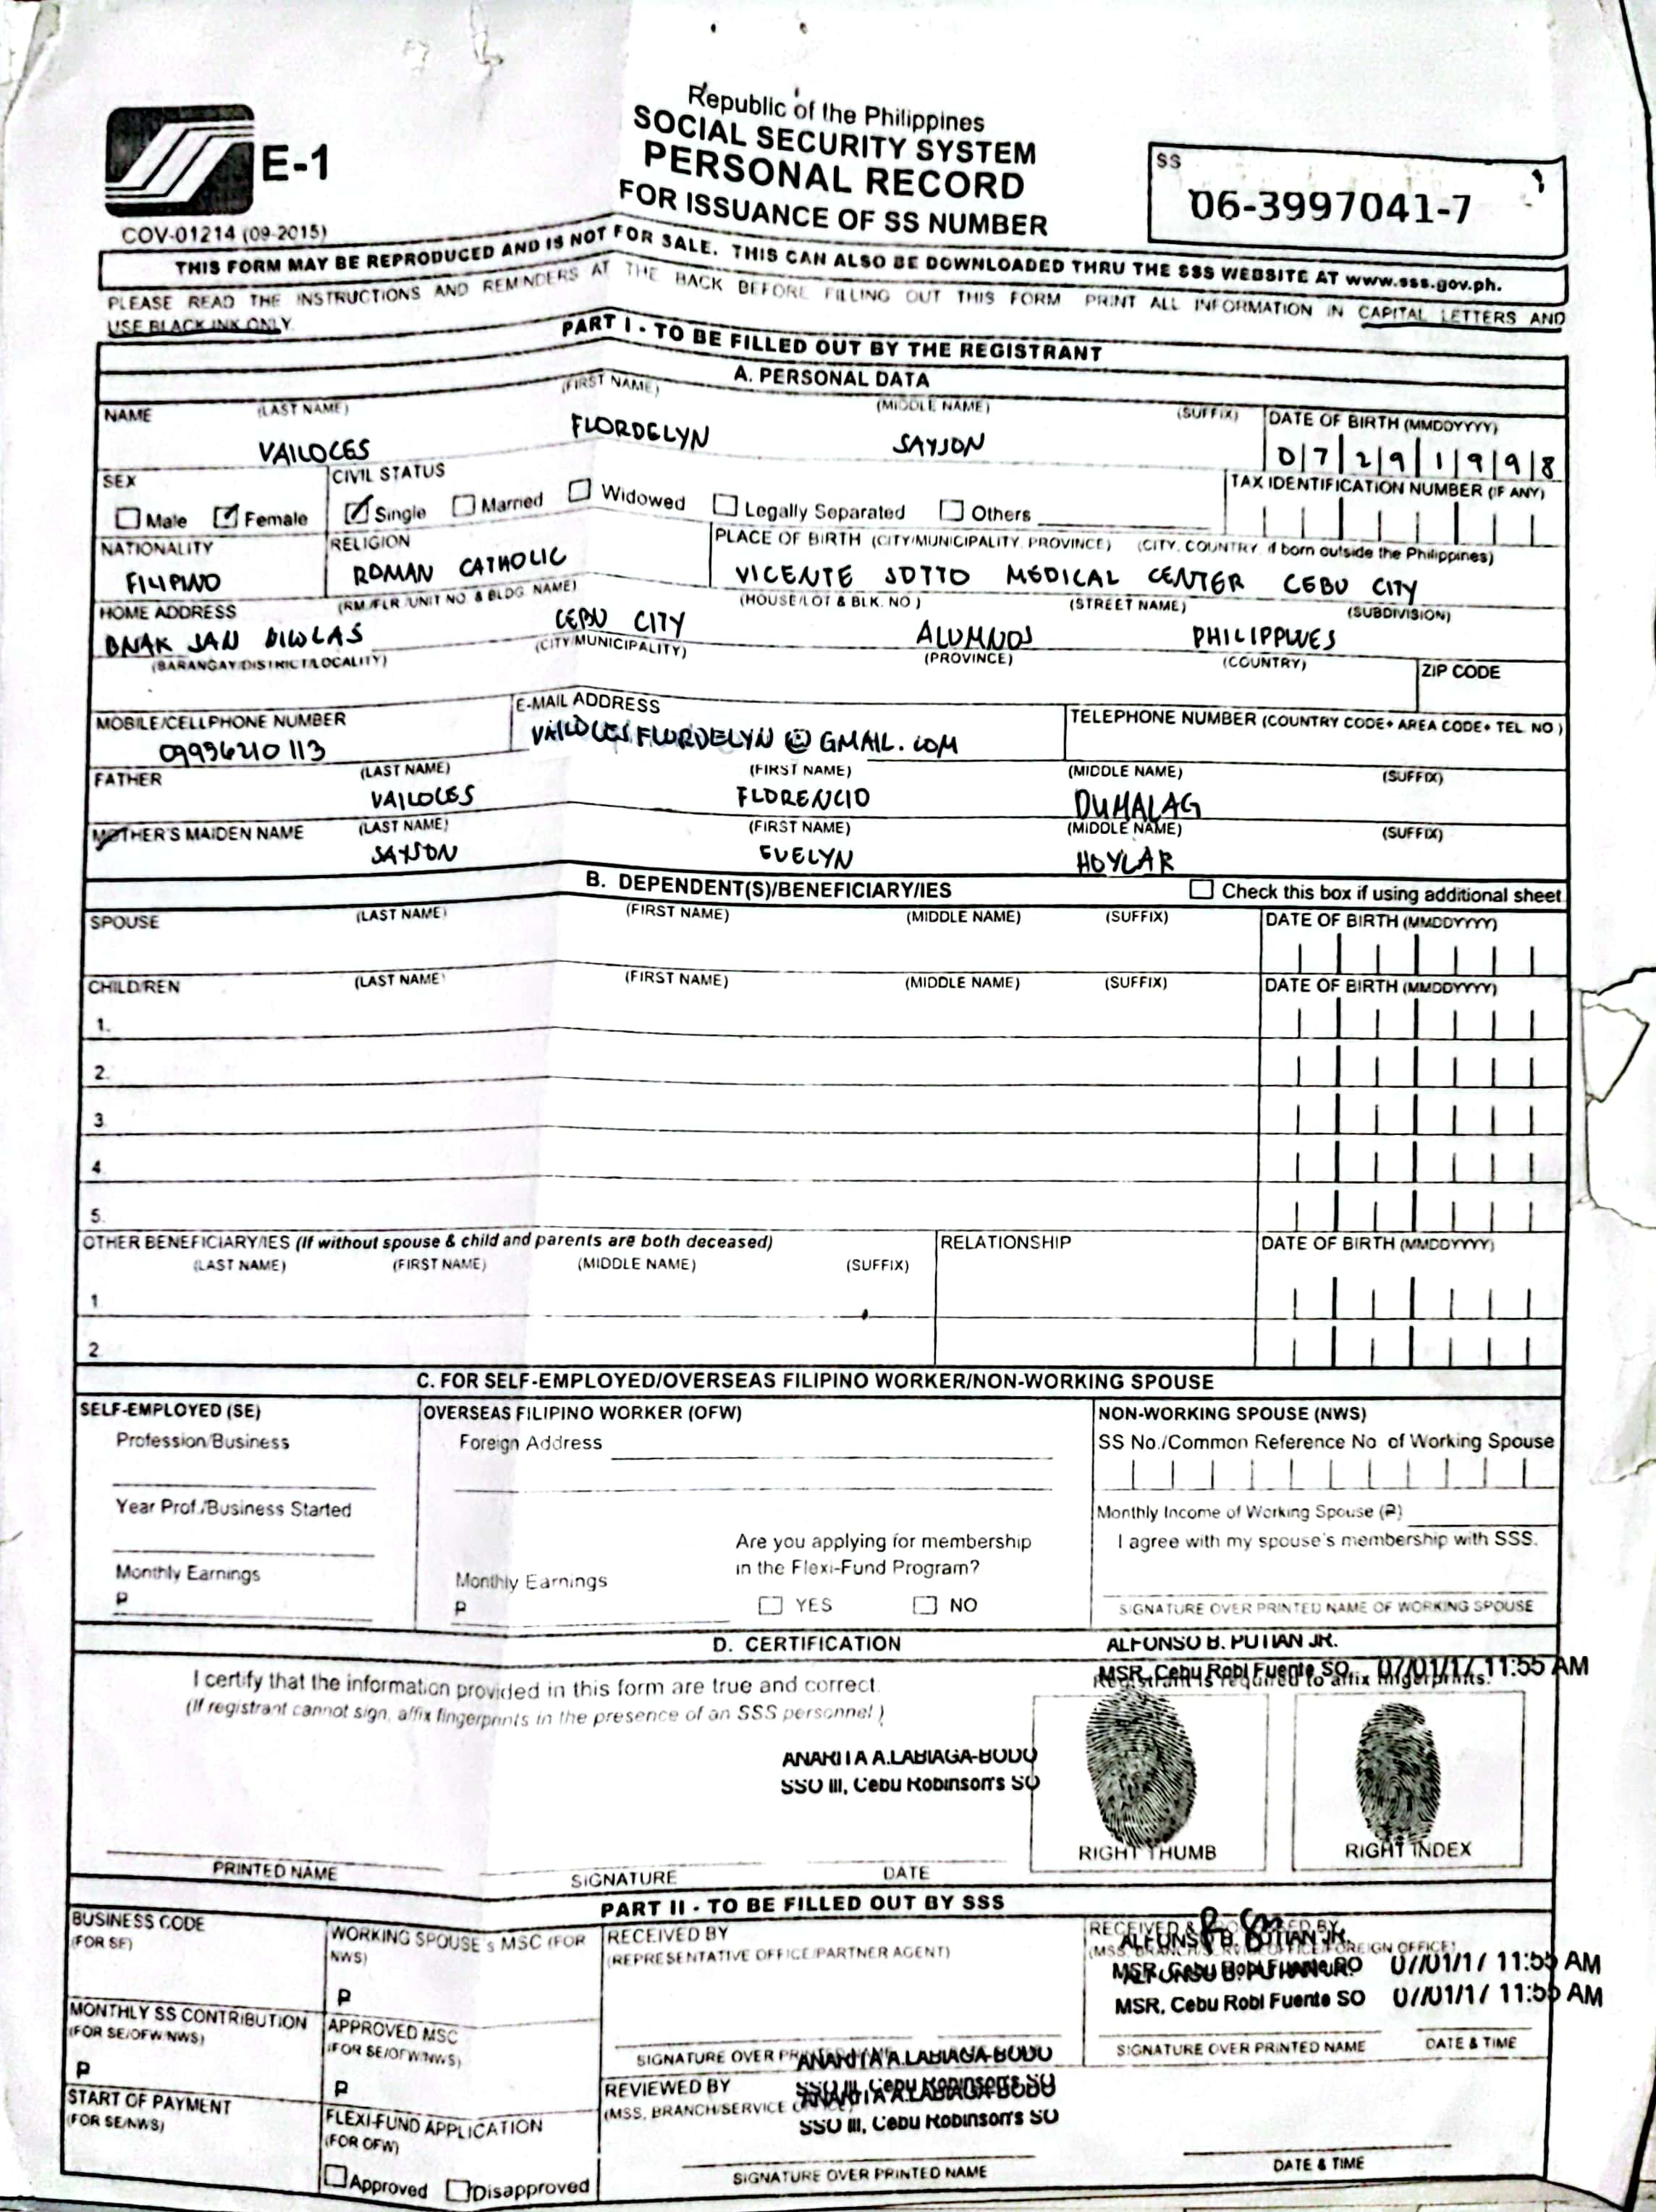 Republic of the Philippines
SOCIAL SECURITY SYSTEM
PERSONAL RECORD
FOR ISSUANCE OF SS NUMBER
E-1
COV-01214 (09-2015)
SS
06-3997041-7
THIS FORM MAY BE REPRODUCED AND IS NOT FOR SALE. THIS CAN ALSO BE DOWNLOADED THRU THE SSS WEBSITE AT www.sss.gov.ph.
PLEASE READ THE INSTRUCTIONS AND REMINDERS AT THE BACK BEFORE FILLING OUT THIS FORM PRINT ALL INFORMATION IN CAPITAL LETTERS AND
USE BLACK INK ONLY
PART I - TO BE FILLED OUT BY THE REGISTRANT
A. PERSONAL DATA
NAME (LAST NAME) (FIRST NAME) (MIDDLE NAME) (SUFFIX) DATE OF BIRTH (MMDDYYYY)
VAILOCES FLORDELYN SAYSON 07291998
SEX CIVIL STATUS TAX IDENTIFICATION NUMBER (IF ANY)
Male Female Single Married Widowed Legally Separated Others
NATIONALITY RELIGION PLACE OF BIRTH (CITY/MUNICIPALITY, PROVINCE) (CITY, COUNTRY, if born outside the Philippines)
FILIPINO ROMAN CATHOLIC VICENTE SOTTO MEDICAL CENTER CEBU CITY
HOME ADDRESS (RM./FLR./UNIT NO. & BLDG. NAME) (HOUSE/LOT & BLK. NO.) (STREET NAME) (SUBDIVISION)
SAN CEBU CITY ALUMNOS PHILIPPINES
(BARANGAY/DISTRICT/LOCALITY) (CITY/MUNICIPALITY) (PROVINCE) (COUNTRY) ZIP CODE
MOBILE/CELLPHONE NUMBER E-MAIL ADDRESS TELEPHONE NUMBER (COUNTRY CODE+ AREA CODE+ TEL. NO.)
09956210113 VAILOCESFLORDELYN@GMAIL.COM
FATHER (LAST NAME) (FIRST NAME) (MIDDLE NAME) (SUFFIX)
VAILOCES FLORENCIO DUHALAG
MOTHER'S MAIDEN NAME (LAST NAME) (FIRST NAME) (MIDDLE NAME) (SUFFIX)
SAYSON EVELYN HOYLAR
B. DEPENDENT(S)/BENEFICIARY/IES Check this box if using additional sheet
SPOUSE (LAST NAME) (FIRST NAME) (MIDDLE NAME) (SUFFIX) DATE OF BIRTH (MMDDYYYY)
CHILD/REN (LAST NAME) (FIRST NAME) (MIDDLE NAME) (SUFFIX) DATE OF BIRTH (MMDDYYYY)
1.
2.
3
4.
5.
OTHER BENEFICIARY/IES (If without spouse & child and parents are both deceased) RELATIONSHIP DATE OF BIRTH (MMDDYYYY)
(LAST NAME) (FIRST NAME) (MIDDLE NAME) (SUFFIX)
1
2
C. FOR SELF-EMPLOYED/OVERSEAS FILIPINO WORKER/NON-WORKING SPOUSE
SELF-EMPLOYED (SE) OVERSEAS FILIPINO WORKER (OFW) NON-WORKING SPOUSE (NWS)
Profession/Business Foreign Address SS No./Common Reference No. of Working Spouse
Year Prof./Business Started Monthly Income of Working Spouse (₱)
Are you applying for membership I agree with my spouse's membership with SSS.
in the Flexi-Fund Program?
Monthly Earnings Monthly Earnings
₱ ₱ YES NO SIGNATURE OVER PRINTED NAME OF WORKING SPOUSE
D. CERTIFICATION
ALFONSO B. PUTIAN JR.
MSR, Cebu Robi Fuente SO 07/01/17 11:55 AM
Registrant is required to affix fingerprints.
I certify that the information provided in this form are true and correct.
(If registrant cannot sign, affix fingerprints in the presence of an SSS personnel.)
ANARITA A.LABIAGA-BODO
SSO III, Cebu Robinson's SO
RIGHT THUMB RIGHT INDEX
PRINTED NAME SIGNATURE DATE
PART II - TO BE FILLED OUT BY SSS
BUSINESS CODE
(FOR SE)
WORKING SPOUSE's MSC (FOR
NWS)
₱
RECEIVED BY
(REPRESENTATIVE OFFICE/PARTNER AGENT)
ALFONSO B. PUTIAN JR.
MSR, Cebu Robi Fuente SO 07/01/17 11:55 AM
ALFONSO B. PUTIAN JR.
MSR, Cebu Robi Fuente SO 07/01/17 11:55 AM
MONTHLY SS CONTRIBUTION
(FOR SE/OFW/NWS)
₱
APPROVED MSC
(FOR SE/OFW/NWS)
₱
SIGNATURE OVER PRINTED NAME DATE & TIME
ANARITA A.LABIAGA-BODO
SSO III, Cebu Robinson's SO
START OF PAYMENT
(FOR SE/NWS)
FLEXI-FUND APPLICATION
(FOR OFW)
Approved Disapproved
REVIEWED BY
(MSS, BRANCH/SERVICE OFFICE)
ANARITA A.LABIAGA-BODO
SSO III, Cebu Robinson's SO
SIGNATURE OVER PRINTED NAME DATE & TIME